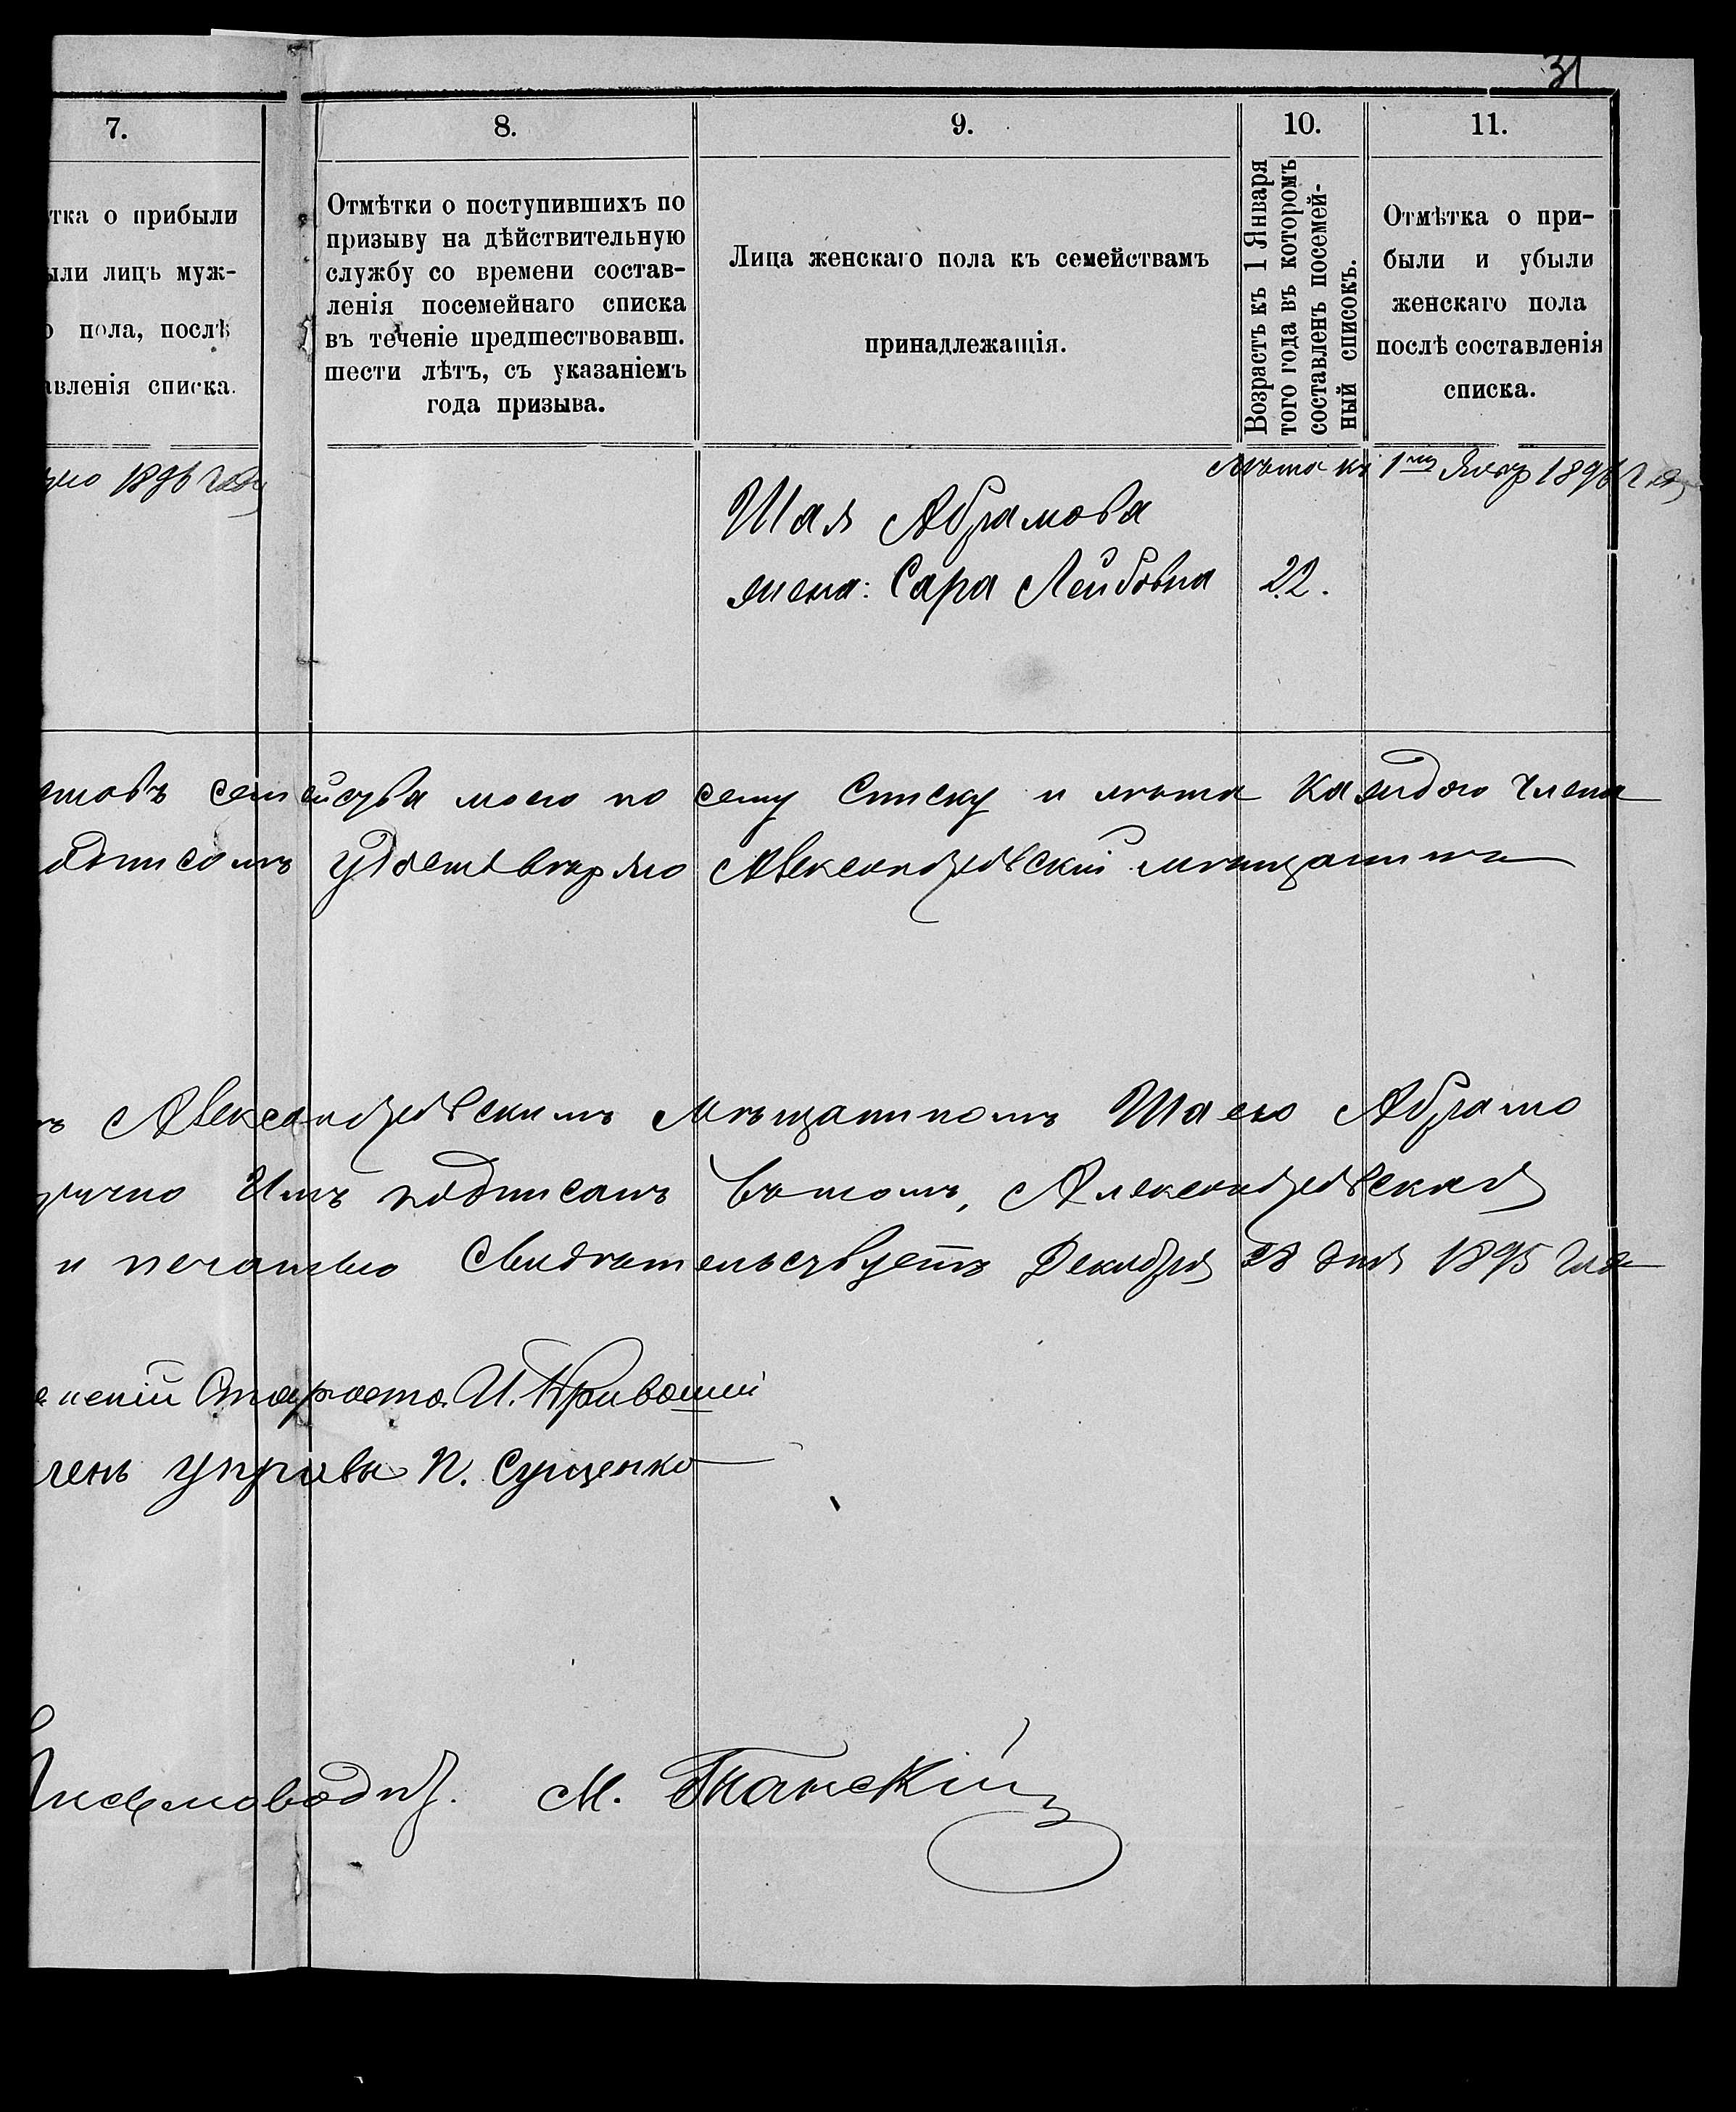 31
7.
8.
9.
10.
11.
тка о прибыли
ыли лицъ муж-
о пола, послѣ
авленія списка.
Отмѣтки о поступившихъ по
призыву на дѣйствительную
службу со времени состав-
ленія посемейнаго списка
въ теченіе предшествовавш.
шести лѣтъ, съ указаніемъ
года призыва.
Лица женскаго пола къ семействамъ
принадлежащія.
Возрастъ къ 1 Января
того года въ которомъ
составленъ посемей-
ный списокъ.
Отмѣтка о при-
были и убыли
женскаго пола
послѣ составленія
списка.
1896 года
лѣта къ 1му Январ 1896 года
Шая Абрамова
жена: Сара Лейбовна 22.
семейства моего по сему списку и лѣта каждого члена
удостовѣряю Александровскій мѣщанинъ
Александровскимъ мѣщаниномъ Шаею Абрамо
имъ подписанъ въ томъ, Александровская
и печатью свидѣтельствуетъ Декабря 28 дня 1895 года
Староста И. Кривошей
ленъ управы П. Сущенко
Письмоводит. М. Танскій